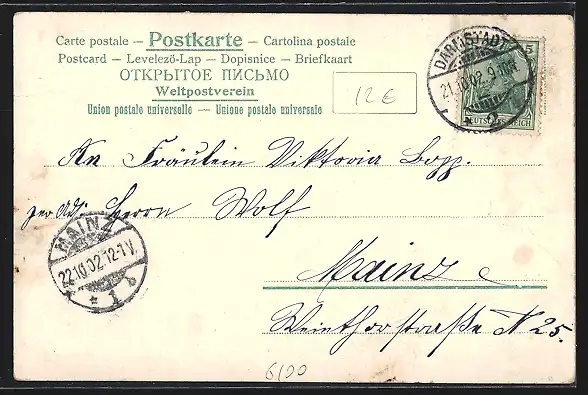 Carte postale - Postkarte - Cartolina postale
Postcard - Levelező-Lap - Dopisnice - Briefkaart
ОТКРЫТОЕ ПИСЬМО
Weltpostverein
Union postale universelle - Unione postale universale
12 €
DARMSTADT
21.10.02. 9-10N
* 2
5
DEUTSCHES REICH
An Fräulein Viktoria Bopp.
per Ad: Herrn Wolf
MAINZ
22.10.02.12-1V.
* 1
Mainz
Weinthorstraße N 25.
6/00